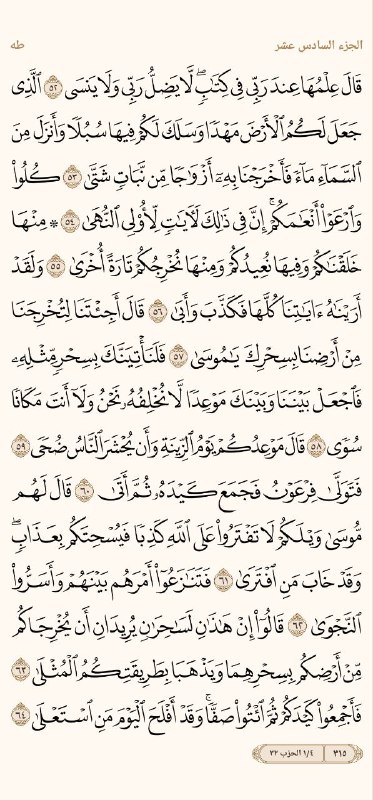 الجزء السادس عشر طه
قَالَ عِلْمُهَا عِندَ رَبِّي فِي كِتَٰبٖۖ لَّا يَضِلُّ رَبِّي وَلَا يَنسَى ٥٢ ٱلَّذِي
جَعَلَ لَكُمُ ٱلۡأَرۡضَ مَهۡدٗا وَسَلَكَ لَكُمۡ فِيهَا سُبُلٗا وَأَنزَلَ مِنَ
ٱلسَّمَآءِ مَآءٗ فَأَخۡرَجۡنَا بِهِۦٓ أَزۡوَٰجٗا مِّن نَّبَاتٖ شَتَّىٰ ٥٣ كُلُواْ
وَٱرۡعَوۡاْ أَنۡعَٰمَكُمۡۚ إِنَّ فِي ذَٰلِكَ لَأٓيَٰتٖ لِّأُوْلِي ٱلنُّهَىٰ ٥٤ ۞ مِنۡهَا
خَلَقۡنَٰكُمۡ وَفِيهَا نُعِيدُكُمۡ وَمِنۡهَا نُخۡرِجُكُمۡ تَارَةً أُخۡرَىٰ ٥٥ وَلَقَدۡ
أَرَيۡنَٰهُ ءَايَٰتِنَا كُلَّهَا فَكَذَّبَ وَأَبَىٰ ٥٦ قَالَ أَجِئۡتَنَا لِتُخۡرِجَنَا
مِنۡ أَرۡضِنَا بِسِحۡرِكَ يَٰمُوسَىٰ ٥٧ فَلَنَأۡتِيَنَّكَ بِسِحۡرٖ مِّثۡلِهِۦ
فَٱجۡعَلۡ بَيۡنَنَا وَبَيۡنَكَ مَوۡعِدٗا لَّا نُخۡلِفُهُۥ نَحۡنُ وَلَآ أَنتَ مَكَانٗا
سُوٗى ٥٨ قَالَ مَوۡعِدُكُمۡ يَوۡمُ ٱلزِّينَةِ وَأَن يُحۡشَرَ ٱلنَّاسُ ضُحٗى ٥٩
فَتَوَلَّىٰ فِرۡعَوۡنُ فَجَمَعَ كَيۡدَهُۥ ثُمَّ أَتَىٰ ٦٠ قَالَ لَهُم
مُّوسَىٰ وَيۡلَكُمۡ لَا تَفۡتَرُواْ عَلَى ٱللَّهِ كَذِبٗا فَيُسۡحِتَكُم بِعَذَابٖۖ
وَقَدۡ خَابَ مَنِ ٱفۡتَرَىٰ ٦١ فَتَنَٰزَعُوٓاْ أَمۡرَهُم بَيۡنَهُمۡ وَأَسَرُّواْ
ٱلنَّجۡوَىٰ ٦٢ قَالُوٓاْ إِنۡ هَٰذَٰنِ لَسَٰحِرَٰنِ يُرِيدَانِ أَن يُخۡرِجَاكُم
مِّنۡ أَرۡضِكُم بِسِحۡرِهِمَا وَيَذۡهَبَا بِطَرِيقَتِكُمُ ٱلۡمُثۡلَىٰ ٦٣
فَأَجۡمِعُواْ كَيۡدَكُمۡ ثُمَّ ٱئۡتُواْ صَفّٗاۚ وَقَدۡ أَفۡلَحَ ٱلۡيَوۡمَ مَنِ ٱسۡتَعۡلَىٰ ٦٤
٣١٥ ١/٤ الحزب ٣٢